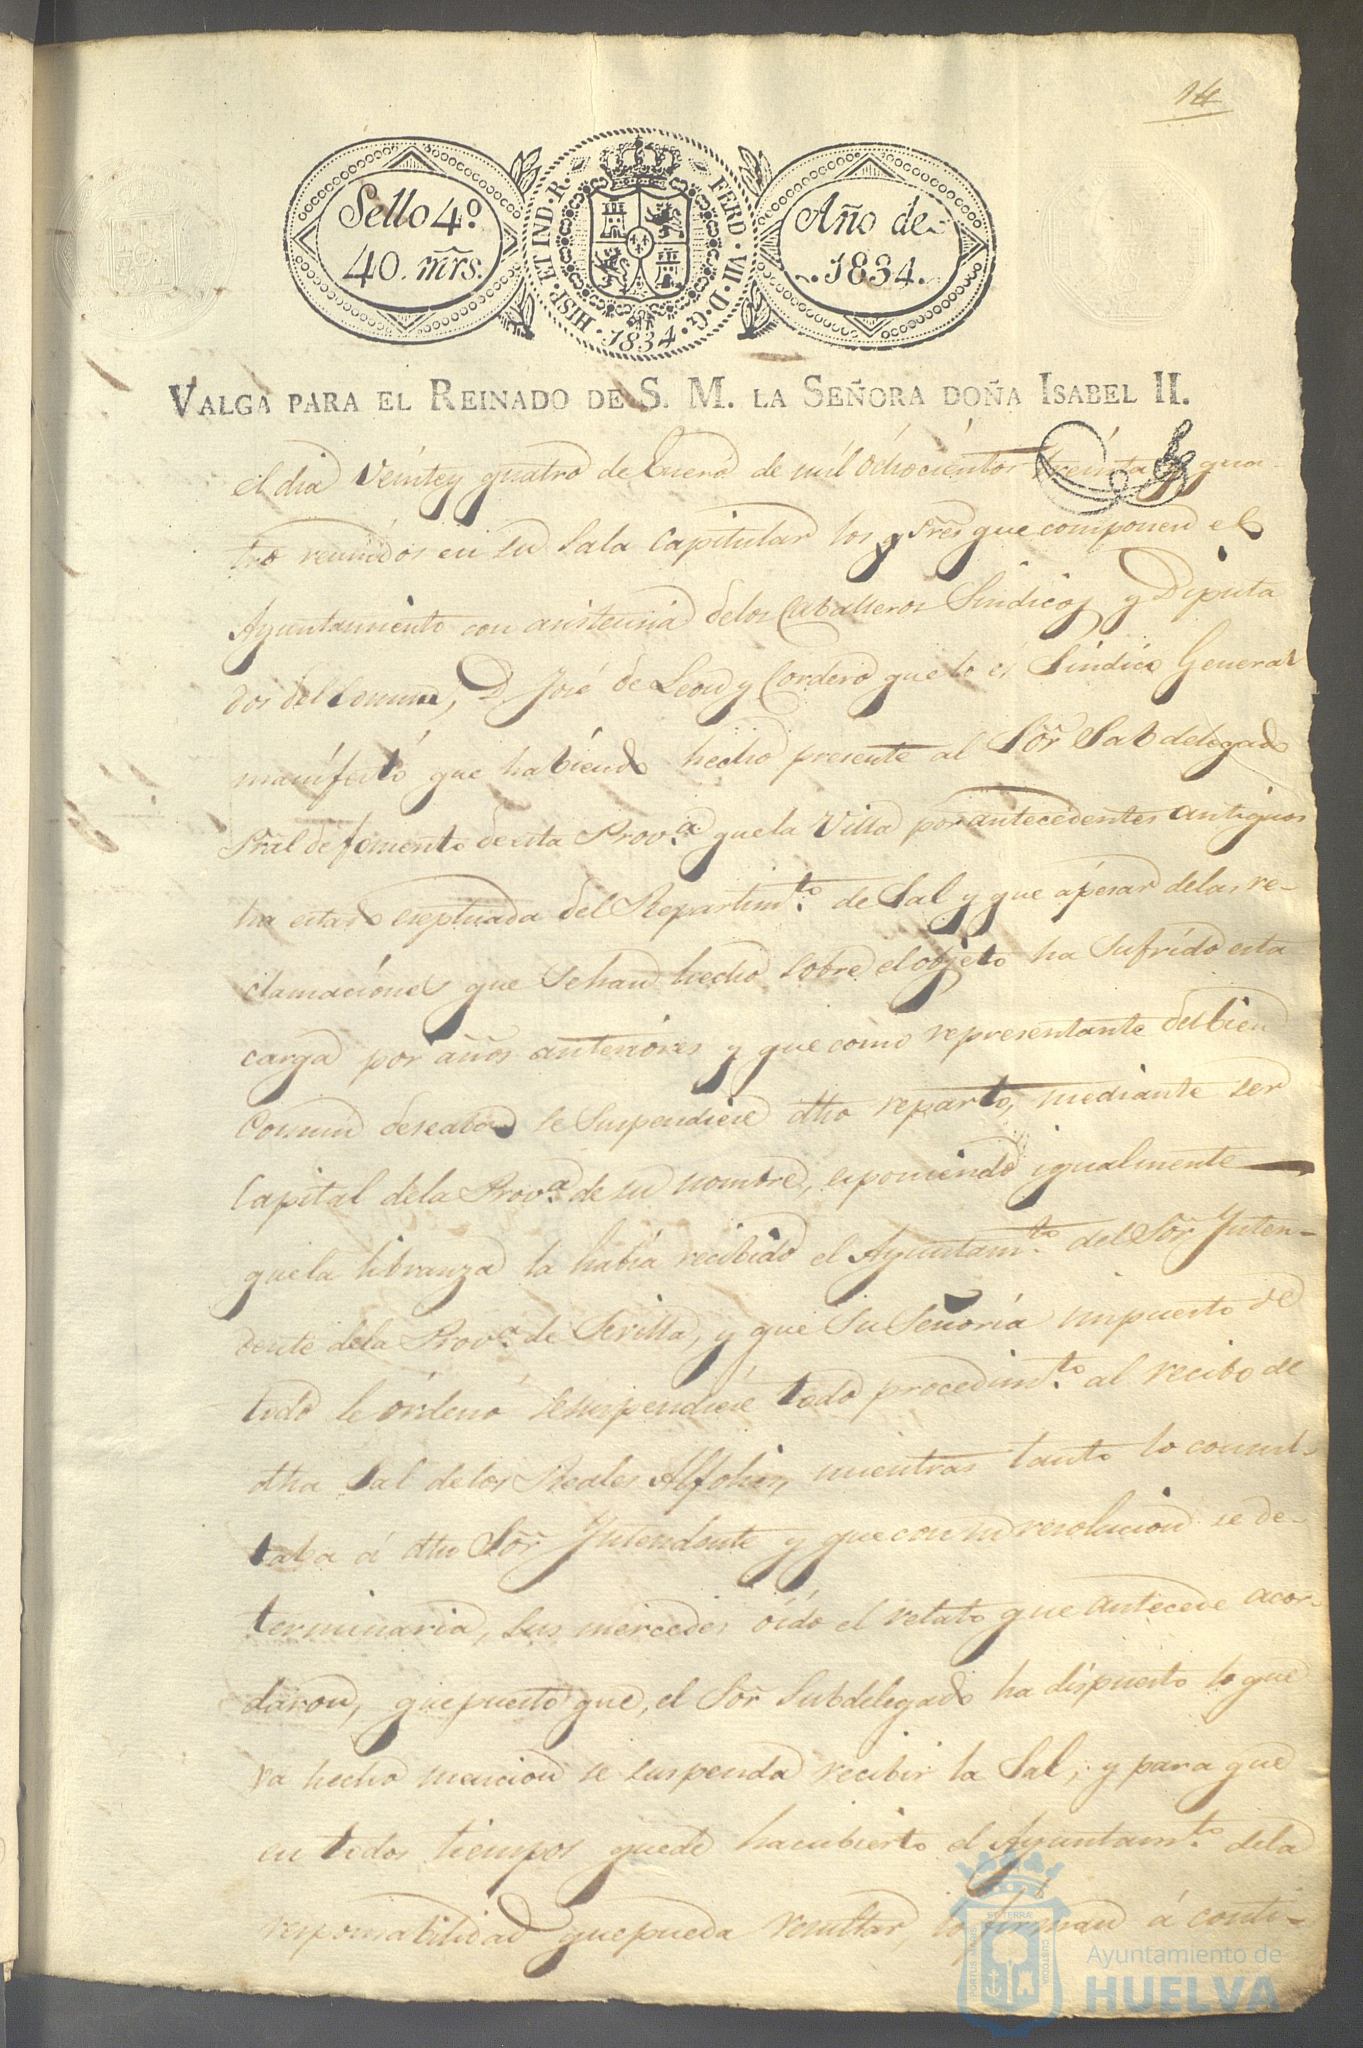 14
Sello 4º
40. mrs.
HISP. ET IND. R. FERD. VII. D. G. 1834
Año de
1834.
VALGA PARA EL REINADO DE S. M. LA SEÑORA DOÑA ISABEL II.
el dia Veintey quatro de Enero de mil ochocientos treinta y qua-
tro reunidos en su Sala Capitular los Sres que componen el
Ayuntamiento con asistencia delos Caballeros Sindicos y Diputa
dos del Comun, D. José de Leon y Cordero que lo es Sindico General
manifestó que habiendo hecho presente al Sõr Subdelegado
Pral de fomento de esta Prov.ª que la Villa por antecedentes antiguos
ha estado eseptuada del Repartim.to de Sal y que apesar delas re-
clamaciones que se han hecho sobre el objeto ha sufrido esta
carga por años anteriores y que como representante del bien
Comun deseaba se suspendiese dho reparto, mediante ser
Capital dela Prov.ª de su nombre, esponiendo igualmente
que la libranza la habia recibido el Ayuntam.to del Sõr Inten-
dente dela Prov.ª de Sevilla, y que Su Señoría impuesto de
todo le ordenó se suspendiese todo procedim.to al recibo de
dha Sal delos Reales Alfolies, mientras tanto lo consul-
taba á dho Sõr Intendente y que con su resolucion se de-
terminaria, sus mercedes oido el relato que antecede acor-
daron, que puesto que, el Sõr Subdelegado ha dispuesto lo que
va hecho mencion se suspenda recibir la Sal; y para que
en todos tiempos quede hacubierto el Ayuntam.to dela
responsabilidad que pueda resultar, lo firman á conti-
PORTUS MARIS ET TERRÆ CUSTODIA
Ayuntamiento de
HUELVA